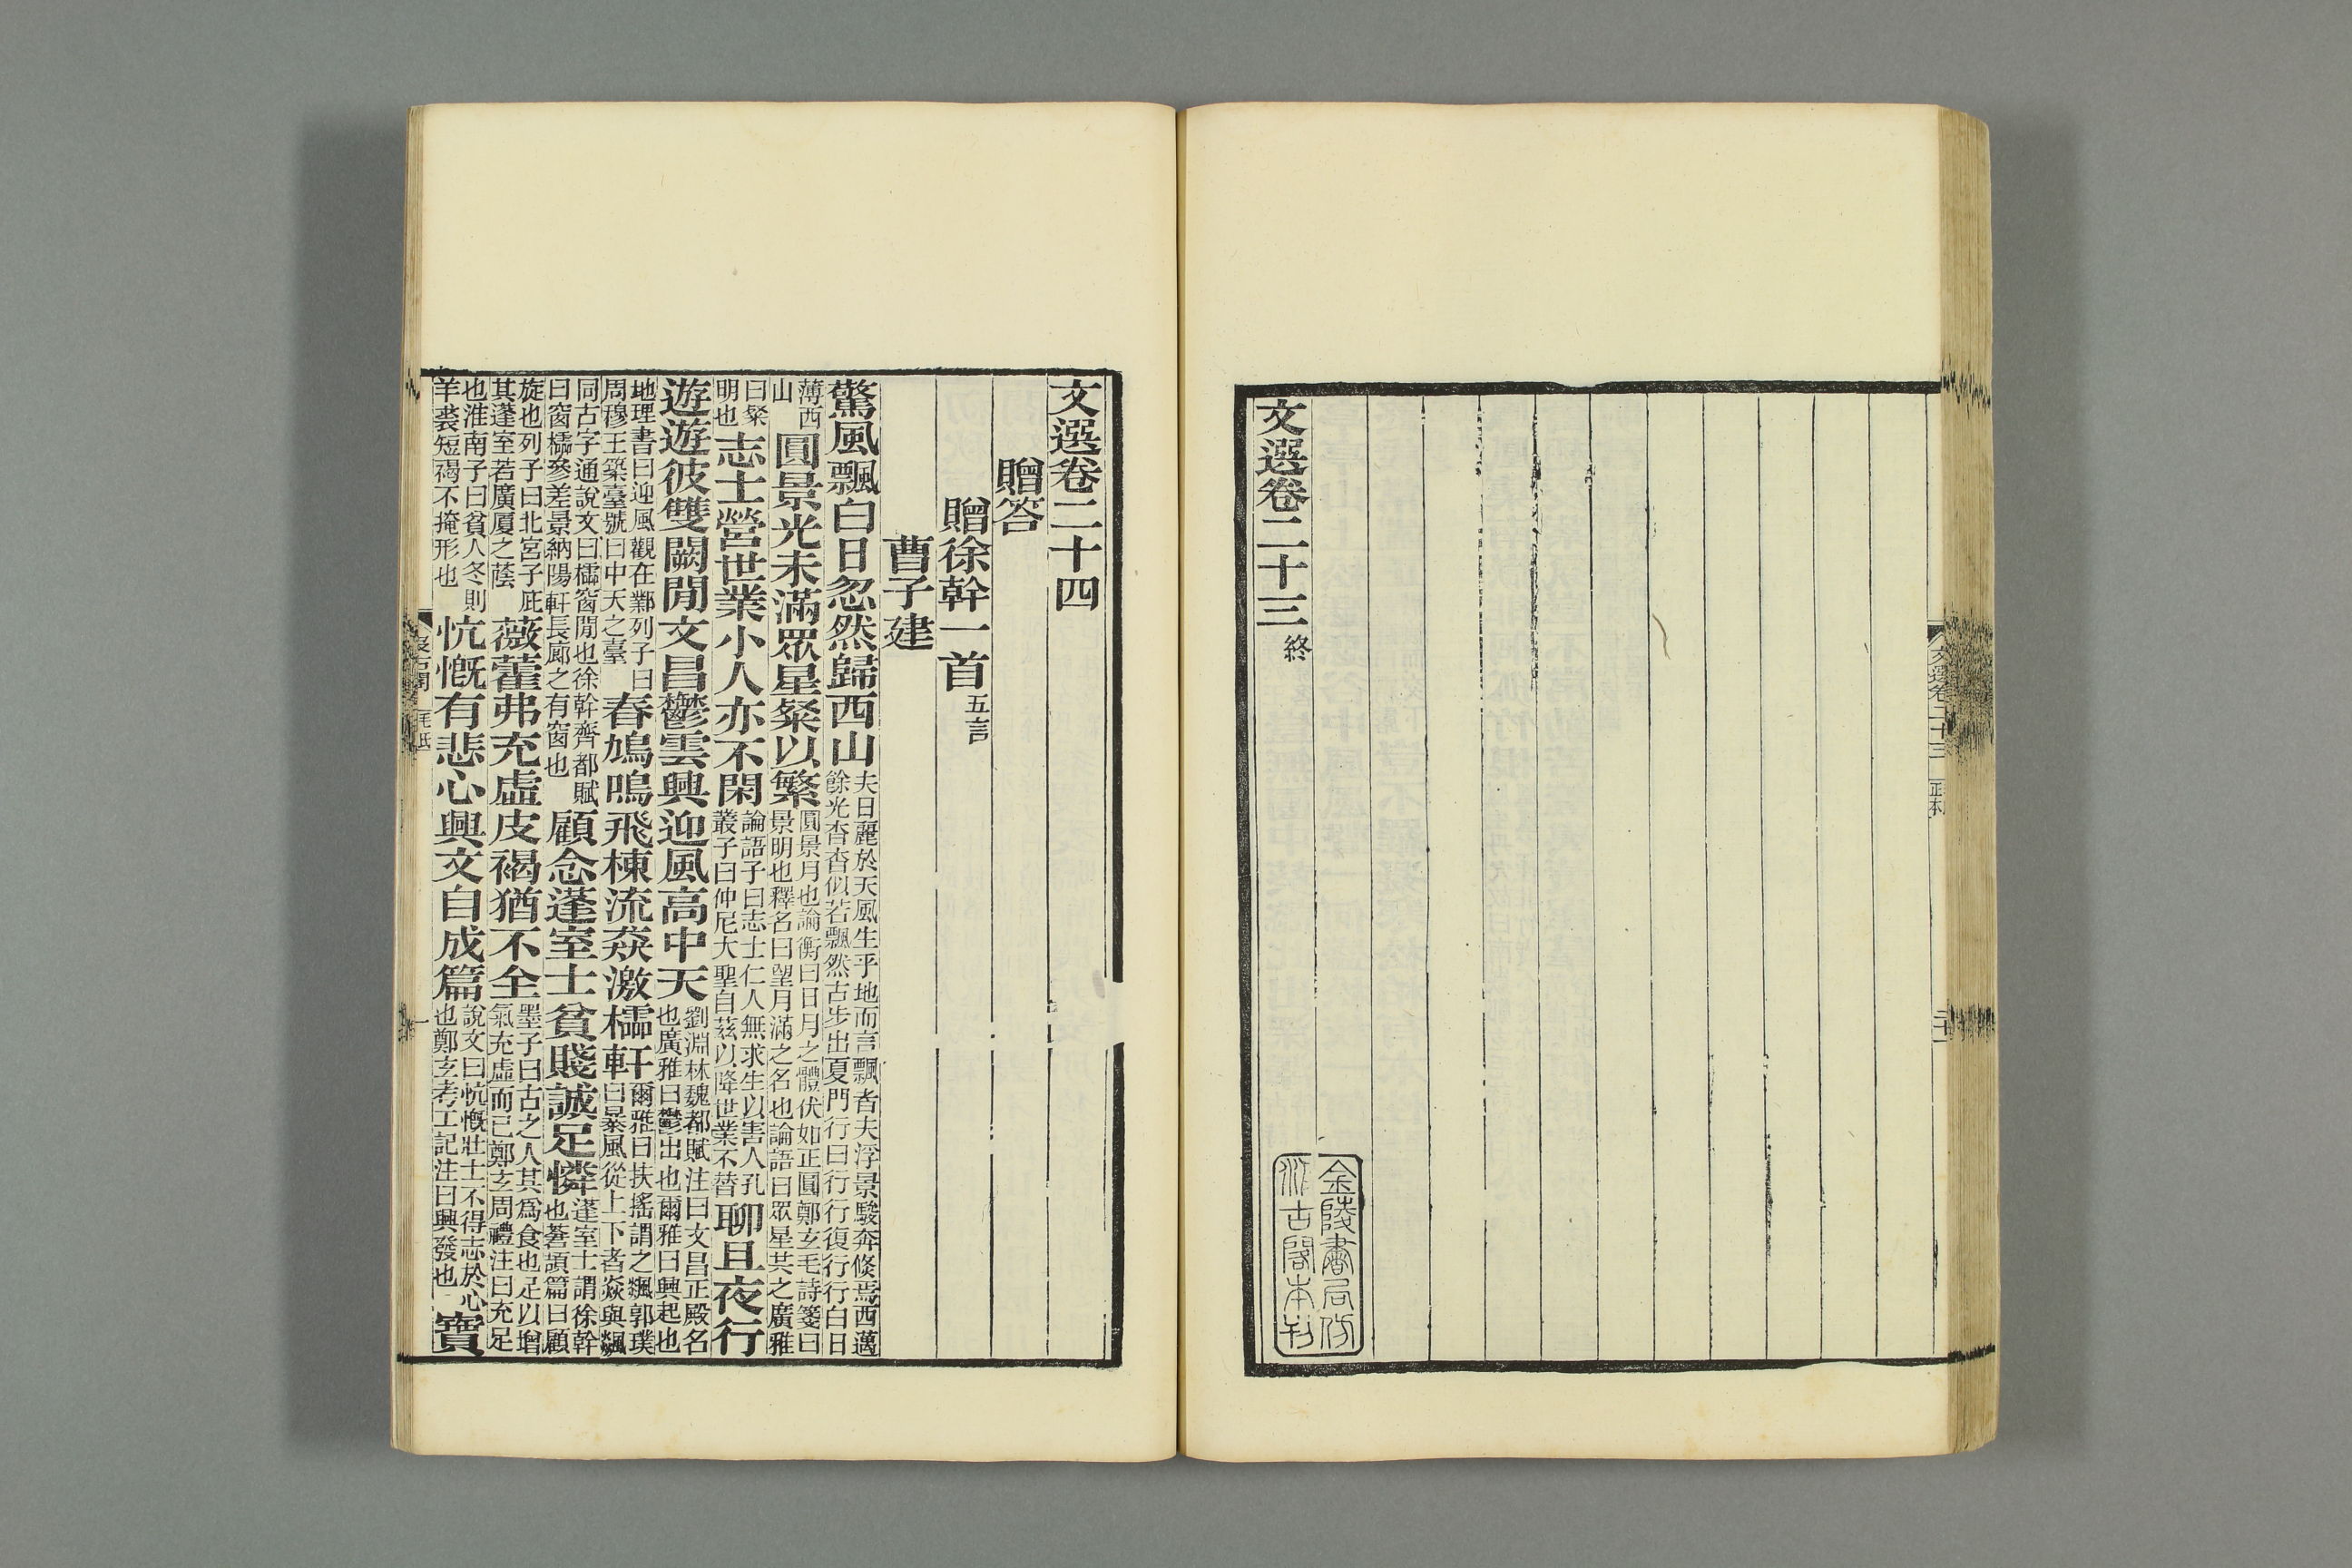 文選卷二十三
文選卷二十三終
金陵書局仿
汲古閣本刊
文選卷二十四
贈答
贈徐幹一首五言
曹子建
驚風飄白日忽然歸西山夫日麗於天風生乎地而言飄者夫浮景駿奔倐焉西邁餘光杳杳似若飄然古步出夏門行曰行行復行行白日
薄西山圓景光未滿眾星粲以繁圓景月也論衡曰日月之體伏如正圓鄭玄毛詩箋曰景明也釋名曰望月滿之名也論語曰眾星共之廣雅
曰粲明也志士營世業小人亦不閑論語子曰志士仁人無求生以害人孔叢子曰仲尼大聖自茲以降世業不替聊且夜行
遊遊彼雙闕閒文昌鬱雲興迎風高中天劉淵林魏都賦注曰文昌正殿名也廣雅曰鬱出也爾雅曰興起也
地理書曰迎風觀在鄴列子曰周穆王築臺號曰中天之臺春鳩鳴飛棟流猋激櫺軒爾雅曰扶搖謂之飆郭璞曰暴風從上下者猋與飆
同古字通說文曰櫺窗閒也徐幹齊都賦曰窗櫺參差景納陽軒長廊之有窗也顧念蓬室士貧賤誠足憐蓬室士謂徐幹也蒼頡篇曰顧
旋也列子曰北宮子庇其蓬室若廣厦之蔭薇藿弗充虛皮褐猶不全墨子曰古之人其爲食也足以增氣充虛而已鄭玄周禮注曰充足
也淮南子曰貧人冬則羊裘短褐不掩形也忼慨有悲心興文自成篇說文曰忼慨壯士不得志於心也鄭玄考工記注曰興發也寶